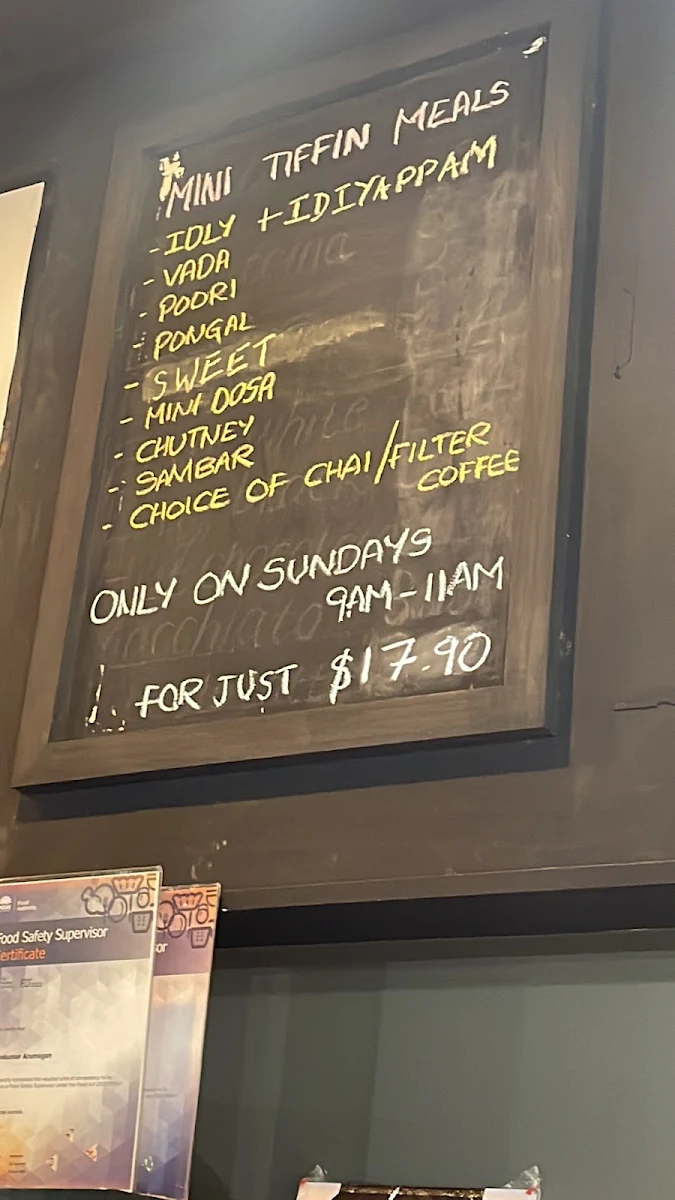 MINI TIFFIN MEALS
- IDLY + IDIYAPPAM
- VADA
- POORI
- PONGAL
- SWEET
- MINI DOSA
- CHUTNEY
- SAMBAR
- CHOICE OF CHAI/FILTER
COFFEE
ONLY ON SUNDAYS
9AM-11AM
FOR JUST $17.90
Food Safety Supervisor
Certificate